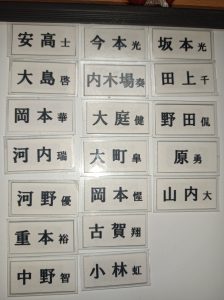 安高士
大島啓
岡本華
河内瑞
河野優
重本裕
中野智
今本光
内木場奏
大庭健
大町皐
岡本惺
古賀翔
小林虹
坂本光
田上千
野田侃
原勇
山内大